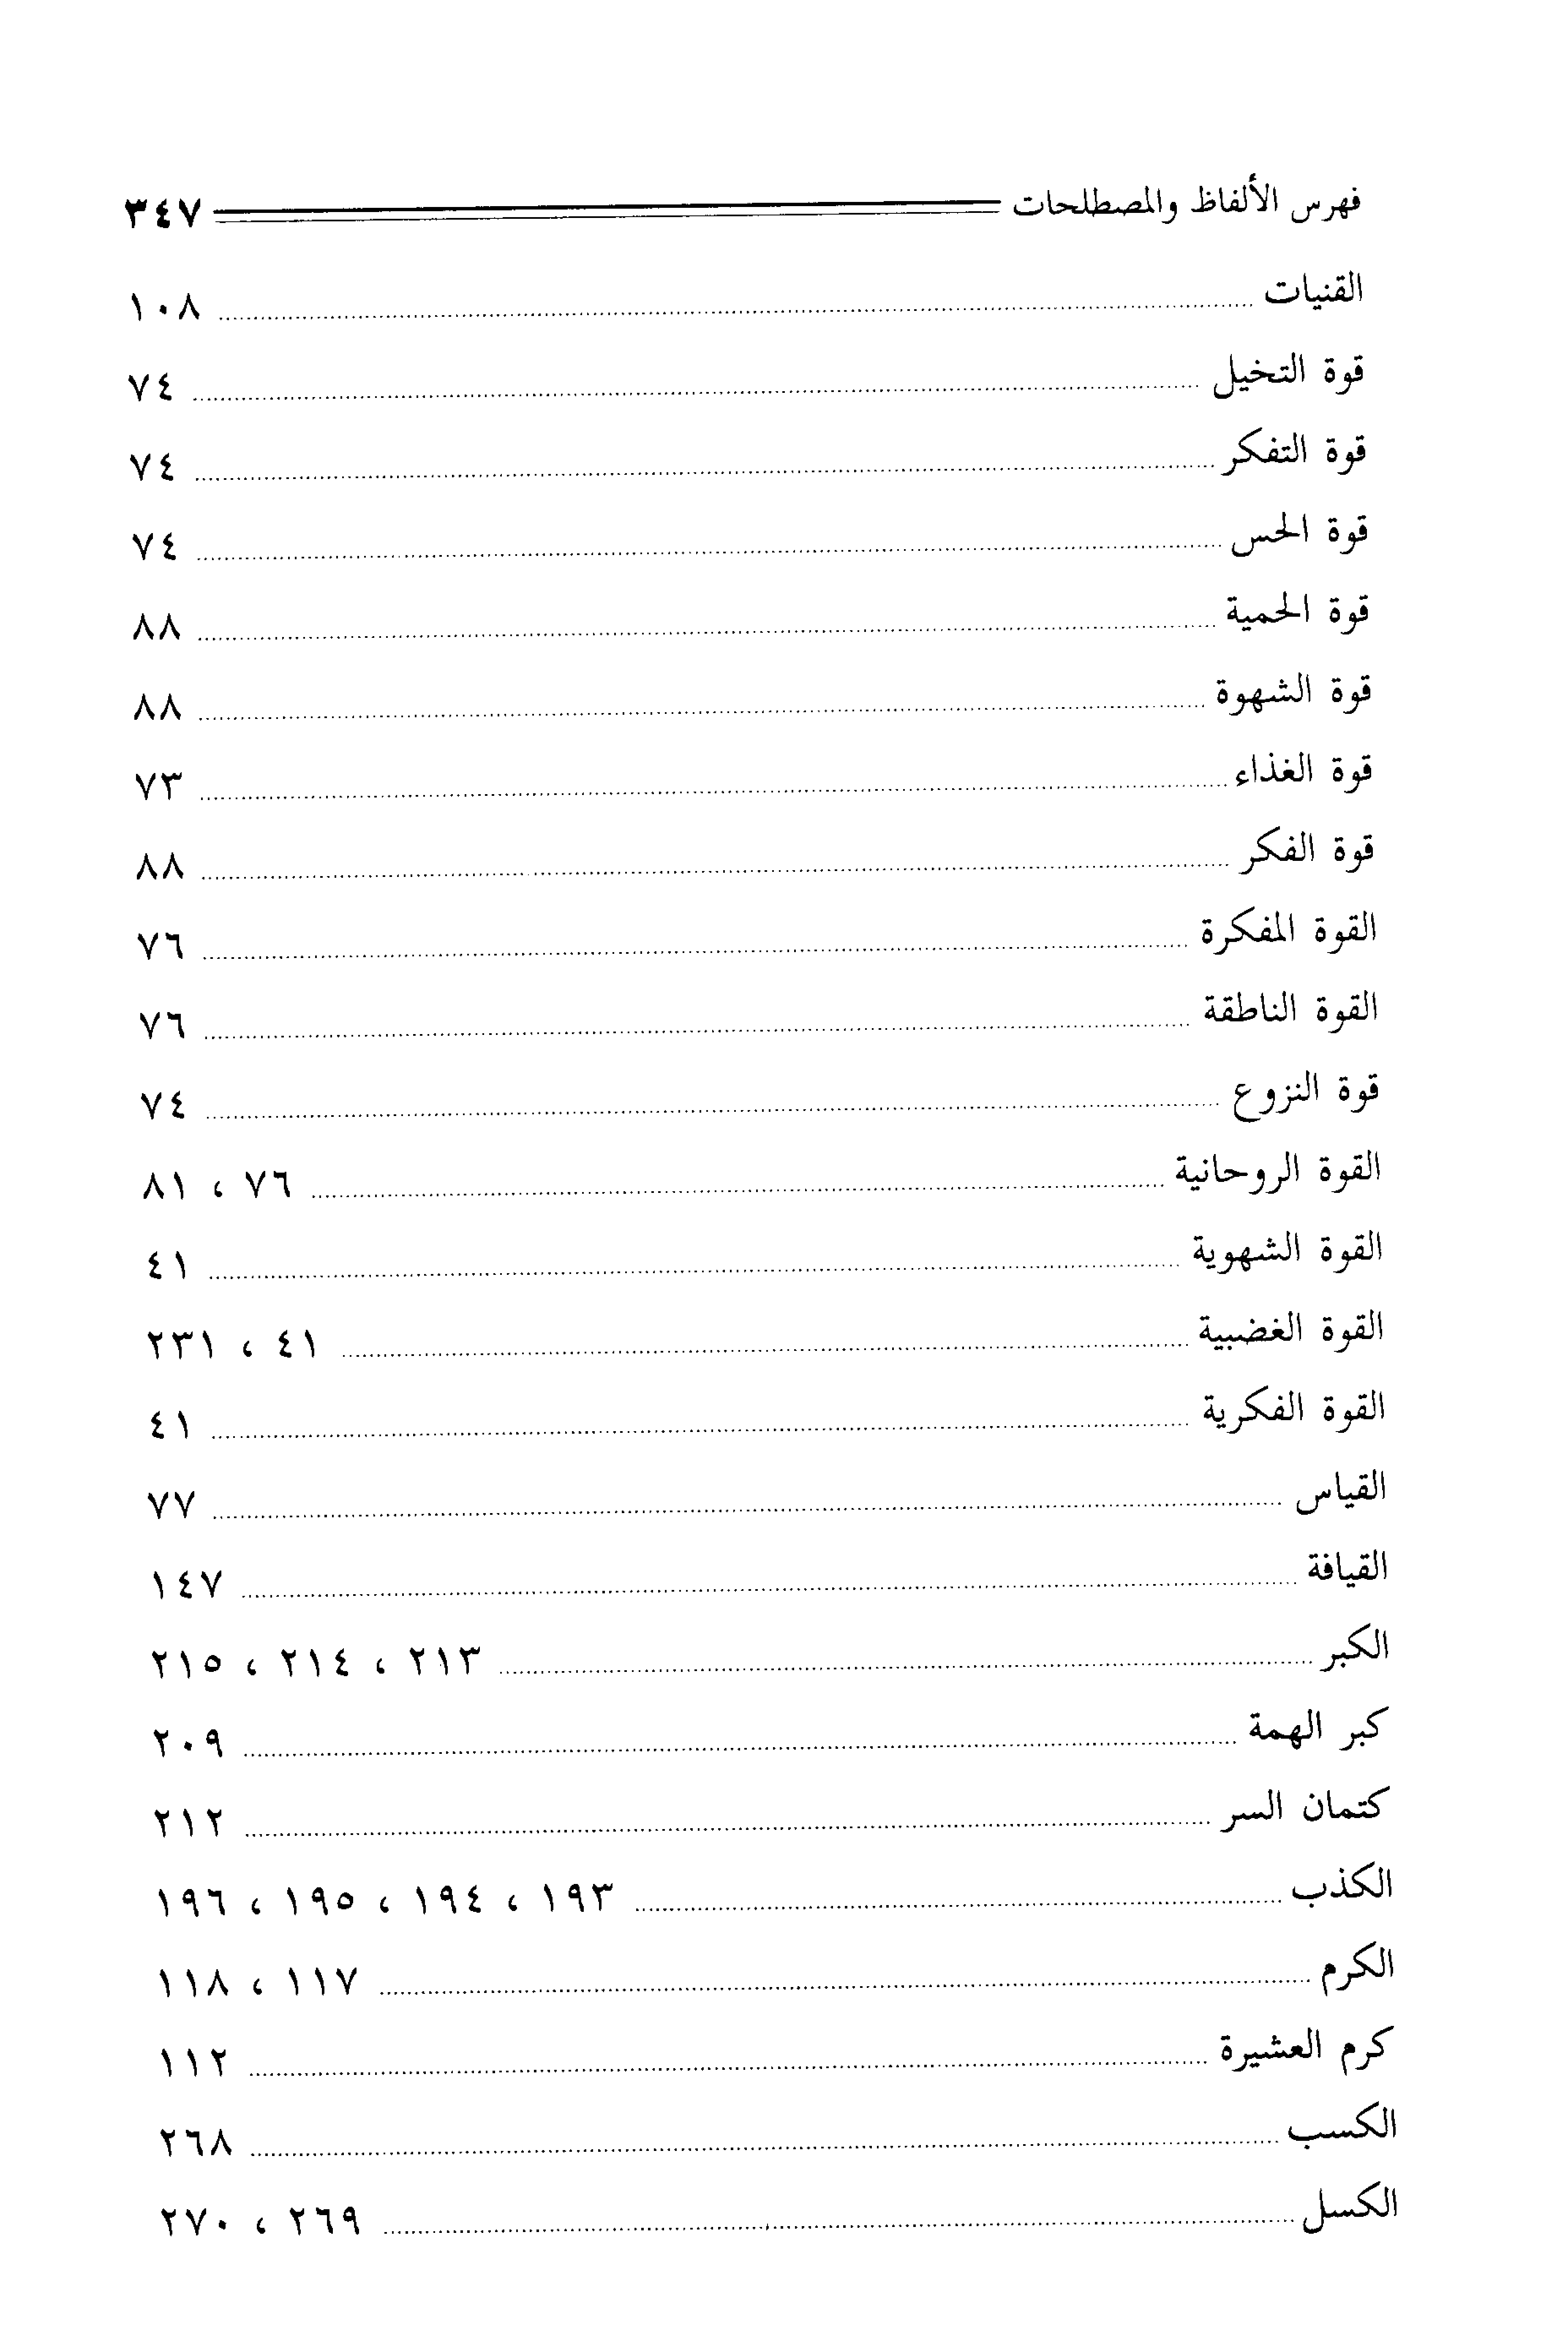 فهرس الألفاظ والمصطلحات ٣٤٧
القنيات ١٠٨
قوة التخيل ٧٤
قوة التفكر ٧٤
قوة الحس ٧٤
قوة الحمية ٨٨
قوة الشهوة ٨٨
قوة الغذاء ٧٣
قوة الفكر ٨٨
القوة المفكرة ٧٦
القوة الناطقة ٧٦
قوة النزوع ٧٤
القوة الروحانية ٧٦ ، ٨١
القوة الشهوية ٤١
القوة الغضبية ٤١ ، ٢٣١
القوة الفكرية ٤١
القياس ٧٧
القيافة ١٤٧
الكبر ٢١٣ ، ٢١٤ ، ٢١٥
كبر الهمة ٢٠٩
كتمان السر ٢١٢
الكذب ١٩٣ ، ١٩٤ ، ١٩٥ ، ١٩٦
الكرم ١١٧ ، ١١٨
كرم العشيرة ١١٢
الكسب ٢٦٨
الكسل ٢٦٩ ، ٢٧٠